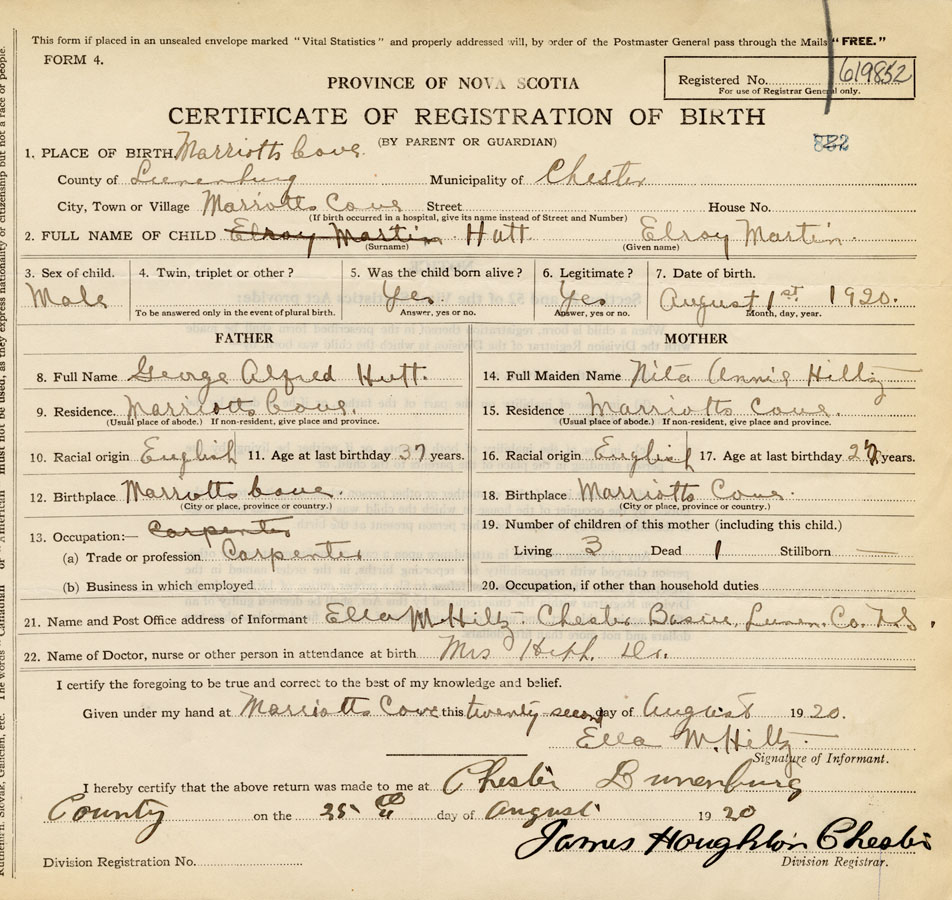 This form if placed in an unsealed envelope marked "Vital Statistics" and properly addressed will, by order of the Postmaster General pass through the Mails "FREE."
FORM 4.
Registered No. 619852
For use of Registrar General only.
PROVINCE OF NOVA SCOTIA
CERTIFICATE OF REGISTRATION OF BIRTH
(BY PARENT OR GUARDIAN)
1. PLACE OF BIRTH Marriotts Cove
County of Lunenburg Municipality of Chester
City, Town or Village Marriotts Cove Street House No.
(If birth occurred in a hospital, give its name instead of Street and Number)
2. FULL NAME OF CHILD Elroy Martin Hutt Elroy Martin
(Surname) (Given name)
3. Sex of child. 4. Twin, triplet or other? 5. Was the child born alive? 6. Legitimate? 7. Date of birth.
Male Yes. Yes August 1st 1920.
To be answered only in the event of plural birth. Answer, yes or no. Answer, yes or no. Month, day, year.
FATHER MOTHER
8. Full Name George Alfred Hutt. 14. Full Maiden Name Nita Annie Hiltz
9. Residence Marriotts Cove. 15. Residence Marriotts Cove.
(Usual place of abode.) If non-resident, give place and province. (Usual place of abode.) If non-resident, give place and province.
10. Racial origin English 11. Age at last birthday 37 years. 16. Racial origin English 17. Age at last birthday years.
12. Birthplace Marriotts Cove. 18. Birthplace Marriotts Cove.
(City or place, province or country.) (City or place, province or country.)
13. Occupation:— Carpenter 19. Number of children of this mother (including this child.)
(a) Trade or profession Carpenter Living 3 Dead 1 Stillborn —
(b) Business in which employed 20. Occupation, if other than household duties
21. Name and Post Office address of Informant Ella M Hiltz. Chester Basin, Lunen. Co. N.S.
22. Name of Doctor, nurse or other person in attendance at birth Mrs Dr.
I certify the foregoing to be true and correct to the best of my knowledge and belief.
Given under my hand at Marriotts Cove this twenty second day of August 1920.
Ella M. Hiltz.
Signature of Informant.
I hereby certify that the above return was made to me at Chester Lunenburg
County on the 25th day of August 1920
James Houghton Chester
Division Registration No. Division Registrar.